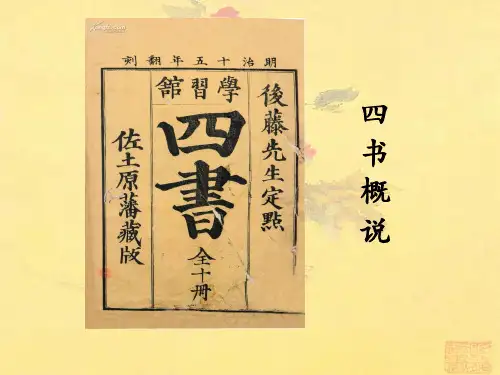 明治十五年翻刻
學習館
後藤先生定點
四書
全十冊
佐土原藩藏版
四书概说